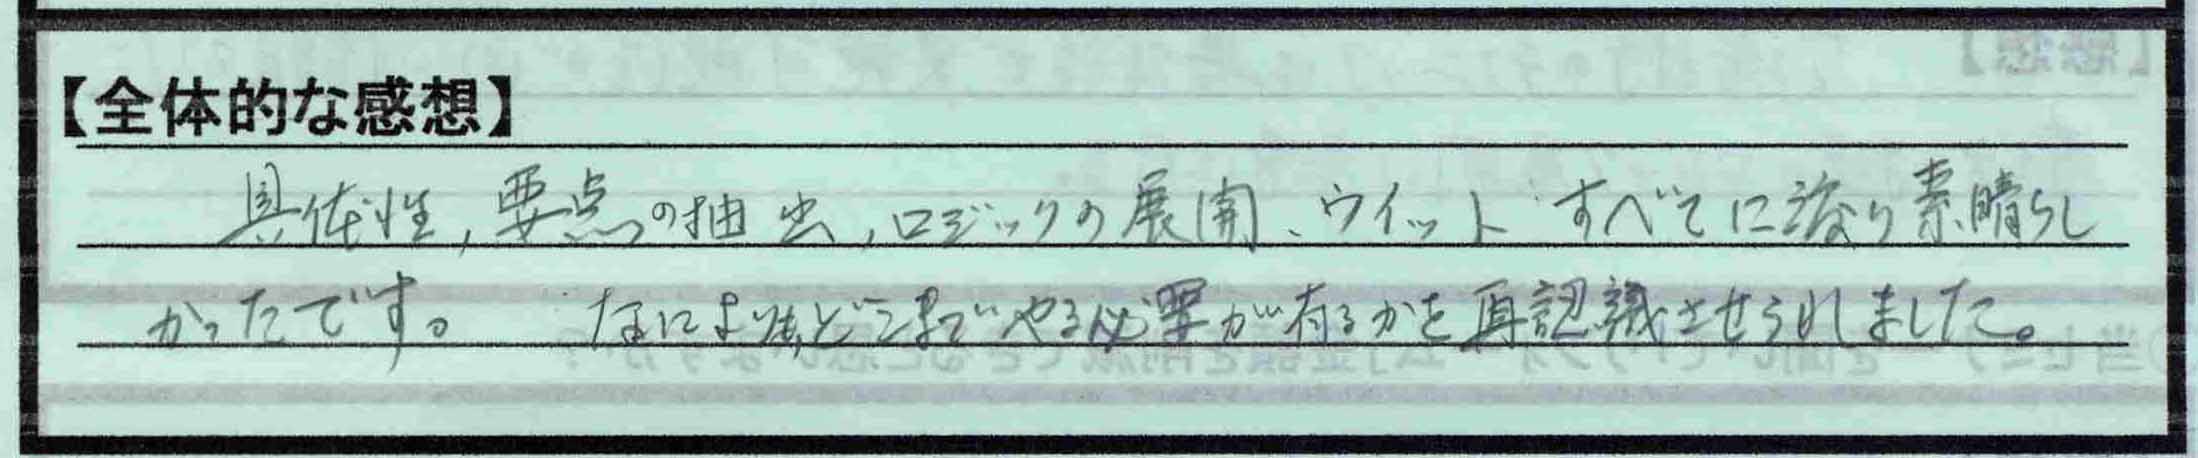 【全体的な感想】
具体性,要点の抽出,ロジックの展開、ウイット すべてに渡り素晴らし
かったです。 なによりも、どこまでやる必要が有るかを再認識させられました。